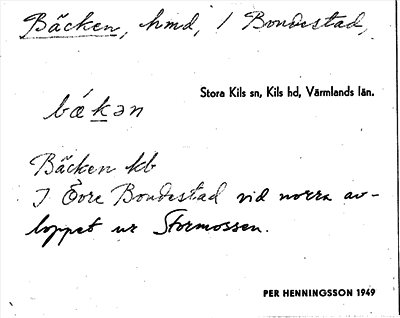 Bäcken, hmd, / Bondestad,
Stora Kils sn, Kils hd, Värmlands län.
bǽkən
Bäcken kb
I Övre Bondestad vid norra av-
loppet ur Stormossen.
PER HENNINGSSON 1949